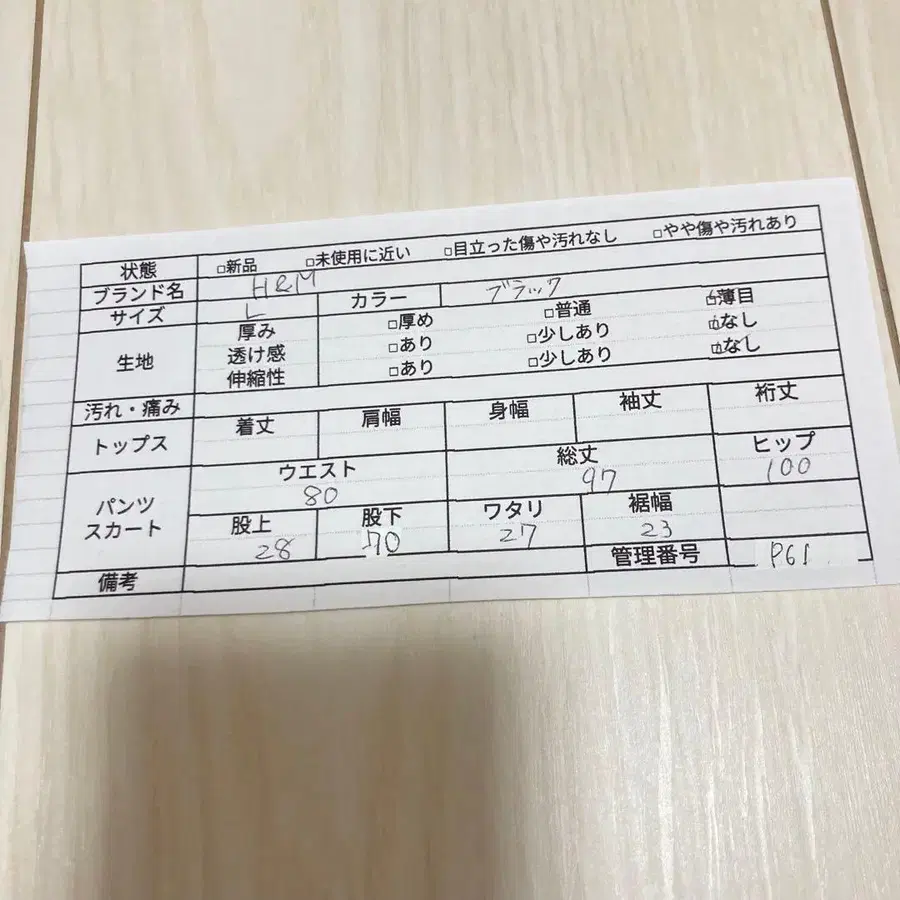 状態 □新品 □未使用に近い □目立った傷や汚れなし □やや傷や汚れあり
ブランド名 H&M
サイズ L カラー ブラック
生地 厚み □厚め □普通 ☑薄目
透け感 □あり □少しあり ☑なし
伸縮性 □あり □少しあり ☑なし
汚れ・痛み
トップス 着丈 肩幅 身幅 袖丈 裄丈
パンツ スカート ウエスト 総丈 ヒップ
80 97 100
股上 股下 ワタリ 裾幅
28 70 27 23
備考 管理番号 P61